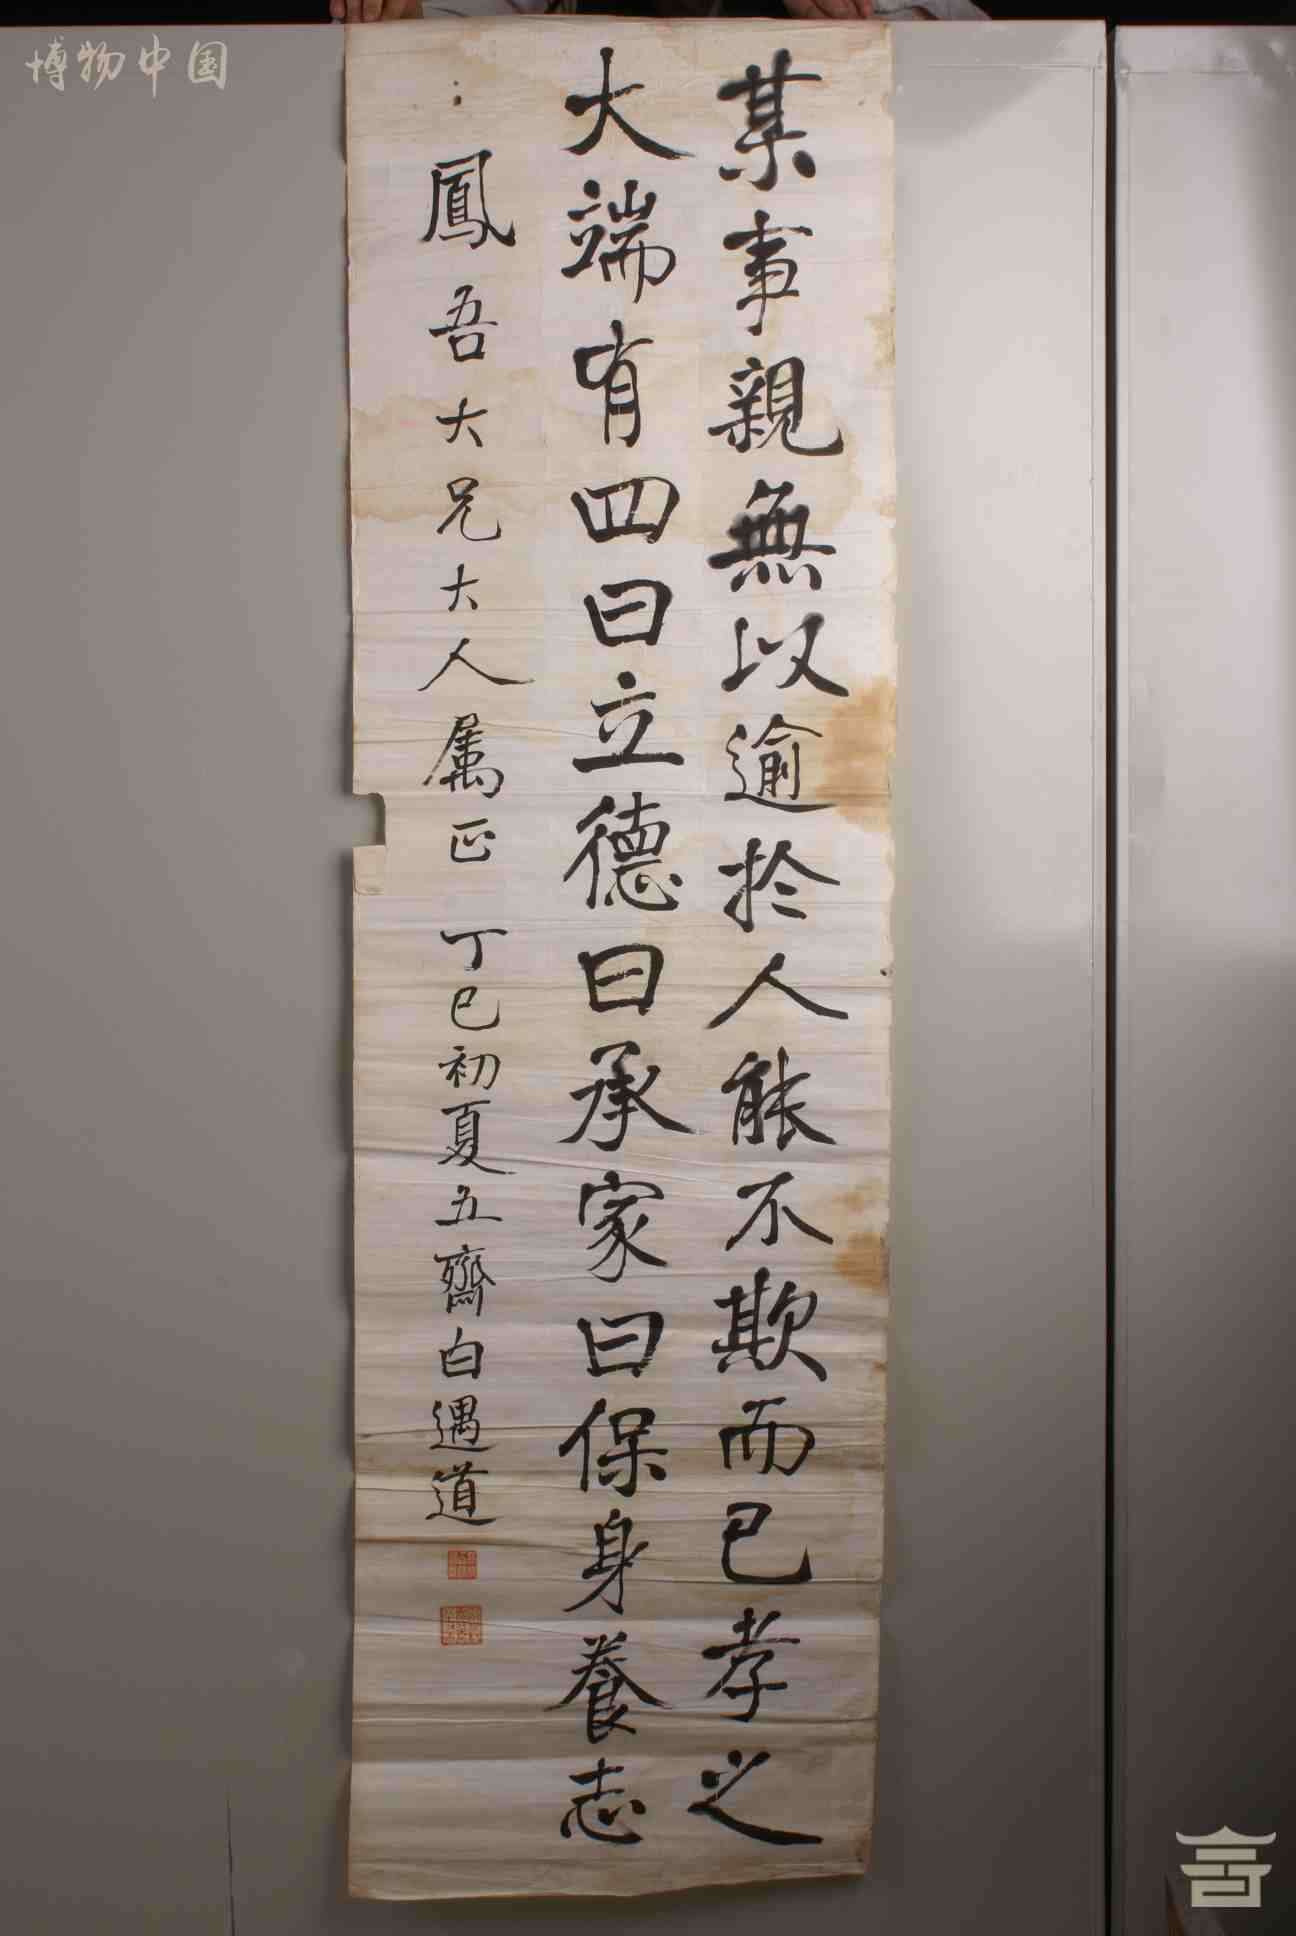 博物中国
某事親無以逾扵人能不欺而已孝之
大端有四曰立德曰承家曰保身養志
鳳吾大兄大人属正 丁巳初夏五齋白遇道